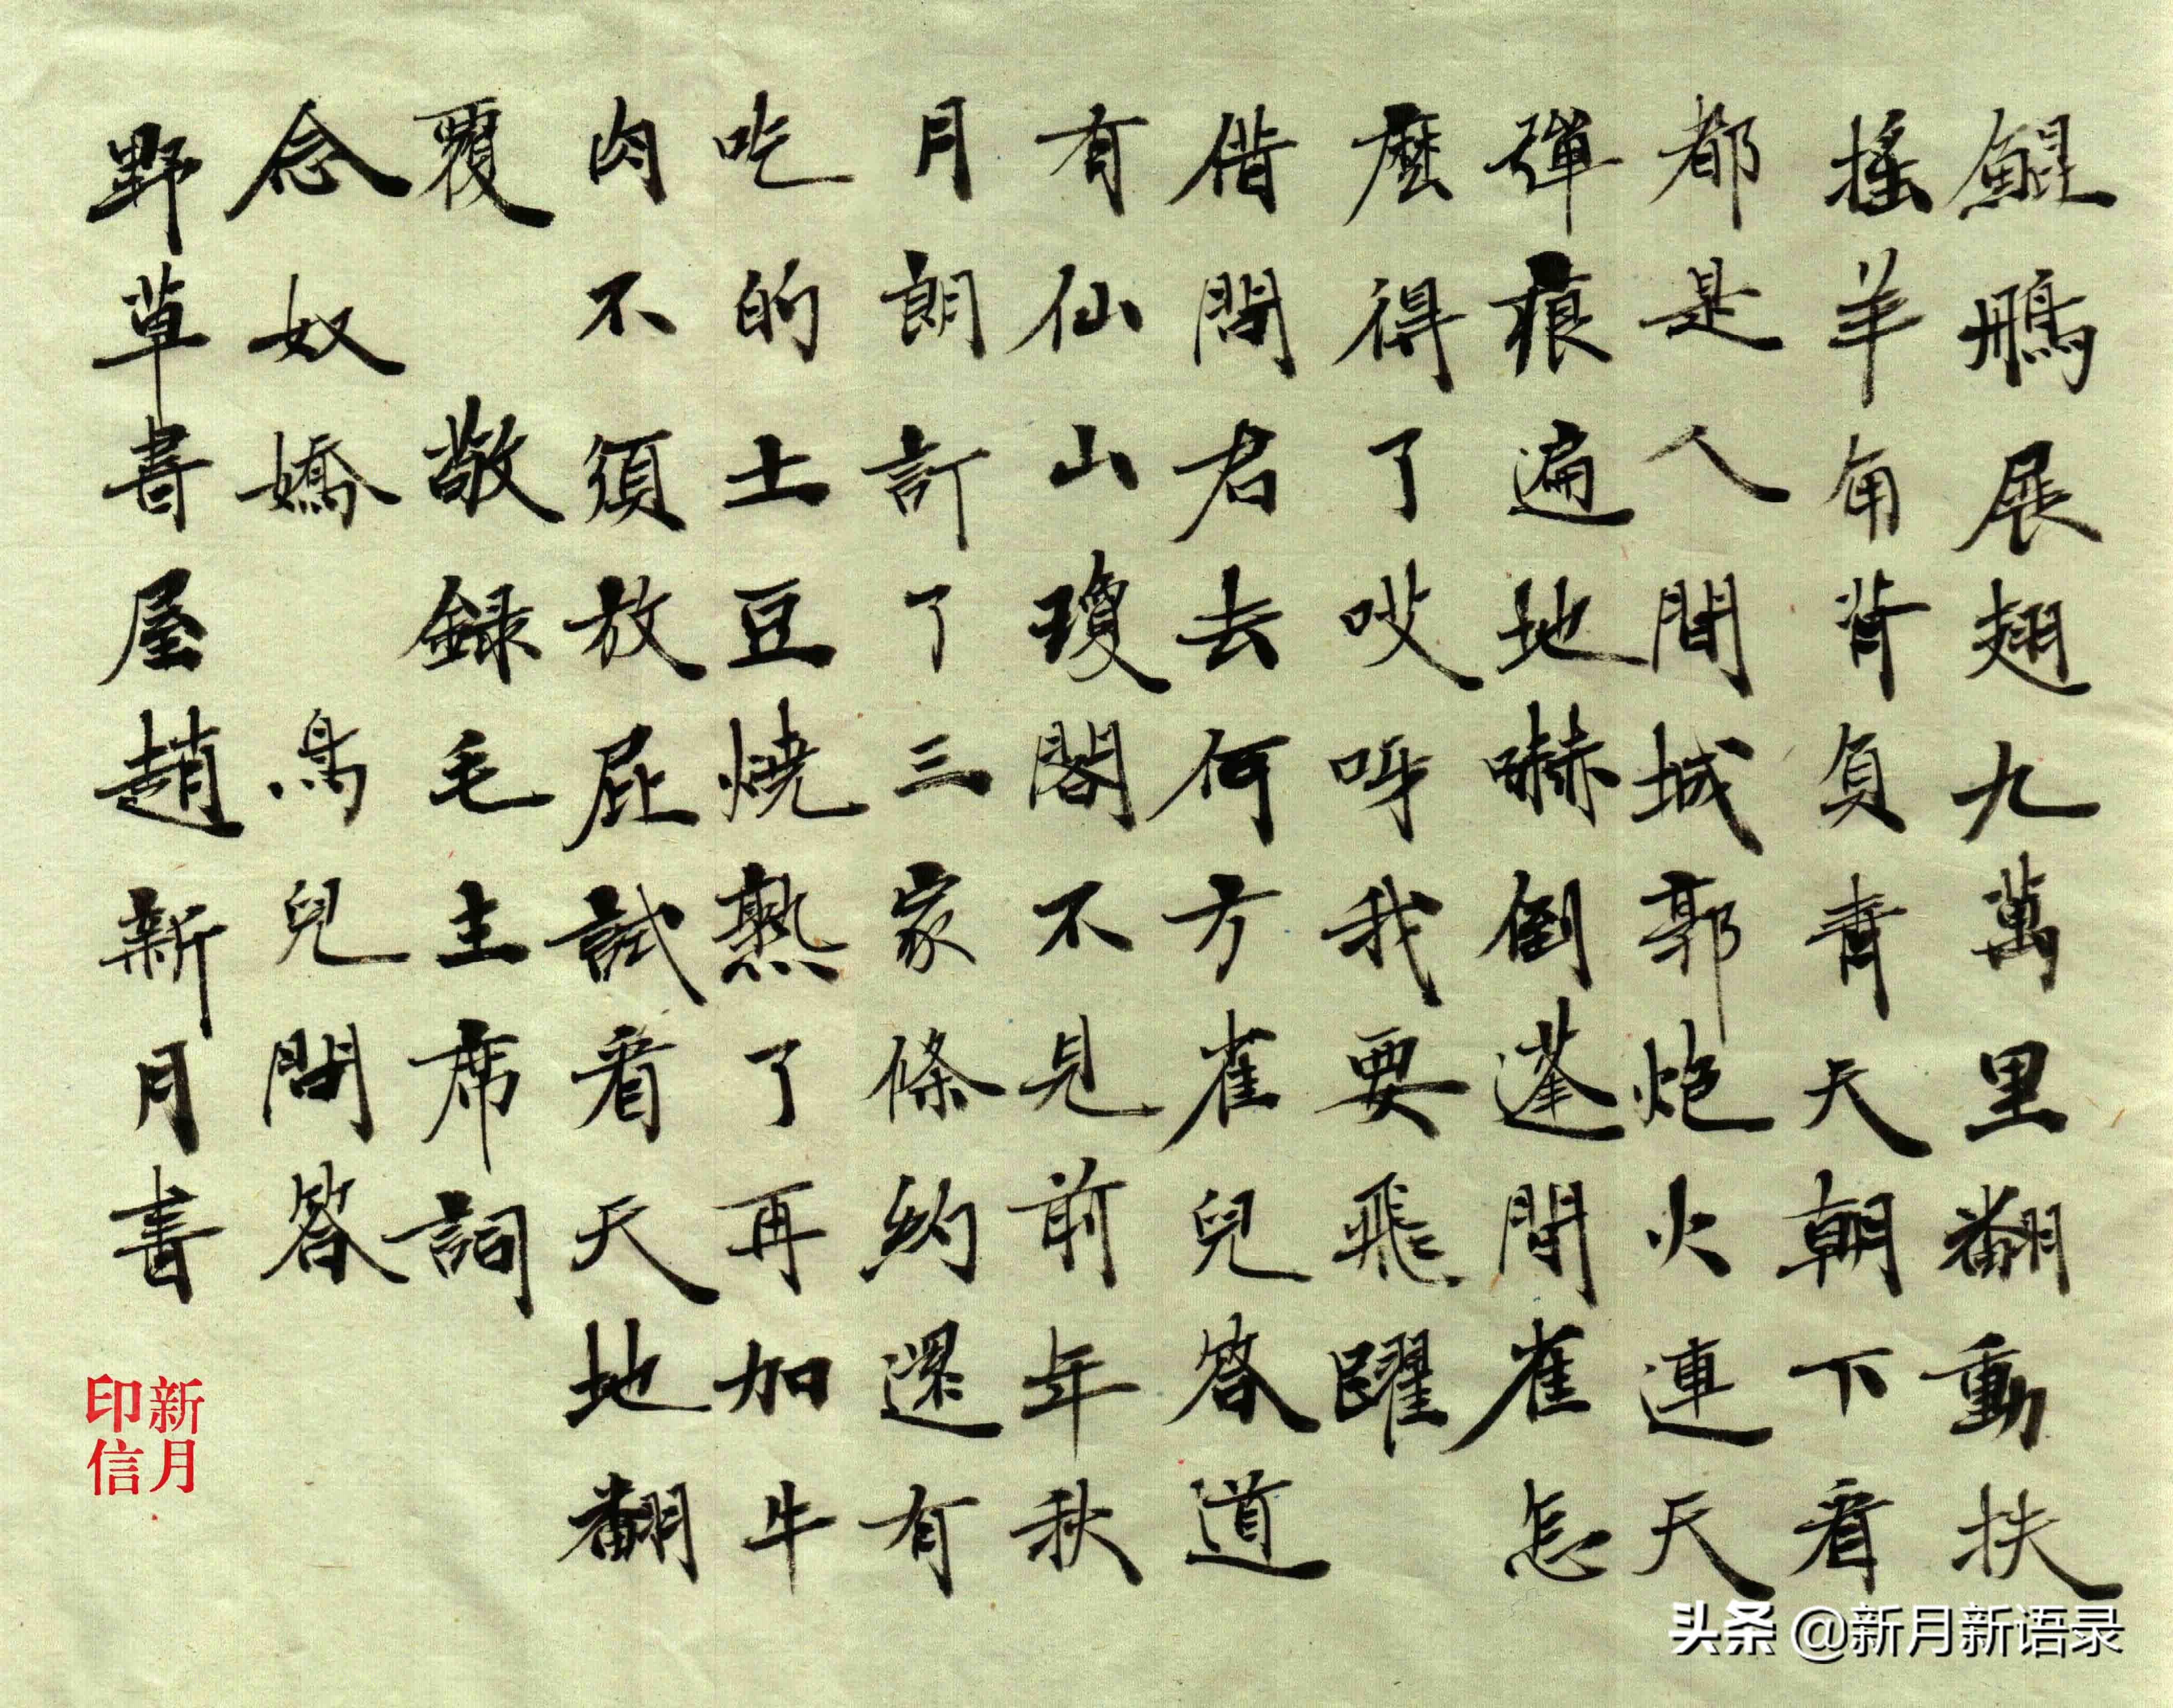 鯤鵬展翅九萬里翻動扶
搖羊角背負青天朝下看
都是人間城郭炮火連天
彈痕遍地嚇倒蓬間雀怎
麼得了哎呀我要飛躍
借問君去何方雀兒答道
有仙山瓊閣不見前年秋
月朗訂了三家條約還有
吃的土豆燒熟了再加牛
肉不須放屁試看天地翻
覆 敬録毛主席詞
念奴嬌 鳥兒問答
野草書屋趙新月書
新月
印信
头条 @新月新语录